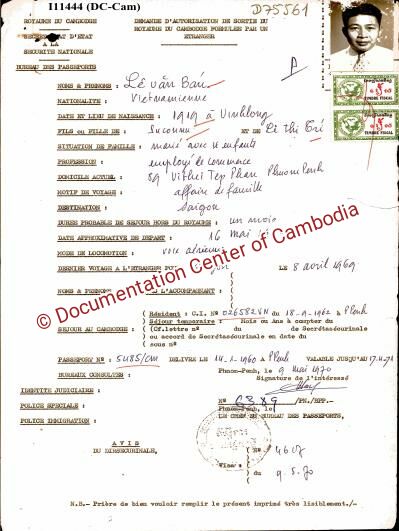 I11444 (DC-Cam)
D75561
ROYAUME DU CAMBODGE
SECRETARIAT D'ETAT
A LA
SECURITE NATIONALE
BUREAU DES PASSEPORTS
DEMANDE D'AUTORISATION DE SORTIE DU
ROYAUME DU CAMBODGE FORMULEE PAR UN
ETRANGER
TIMBRE FISCAL
TIMBRE FISCAL
NOMS & PRENOMS : Lê Văn Báu
NATIONALITE : Vietnamienne
DATE ET LIEU DE NAISSANCE : 1919 à Vinhlong
FILS ou FILLE DE : Inconnu ET DE Lê Thi Tri
SITUATION DE FAMILLE : marié avec enfants
PROFESSION : employé de commerce
DOMICILE ACTUEL : 89 Vithei Tep Phan Phnom Penh
MOTIF DE VOYAGE : affaire de famille
DESTINATION : Saigon
DUREE PROBABLE DE SEJOUR HORS DU ROYAUME : un mois
DATE APPROXIMATIVE DE DEPART : 16 mai
MODE DE LOCOMOTION : voie aérienne
DERNIER VOYAGE A L'ETRANGER LE 8 avril 1969
NOMS & PRENOMS L'ACCOMPAGNANT :
© Documentation Center of Cambodia
SEJOUR AU CAMBODGE :
( Résident : C.I. N° du 18-9-1962 à P Penh
( Séjour temporaire : Mois ou Ans à compter du
(Cf.lettre n° du de Secrétsécurinale
ou accord de Secrétsécurinale en date du
sous n°
PASSEPORT N° : 5485/CM DELIVRE LE 14-1-1960 à P Penh VALABLE JUSQU'AU 17-1-71
BUREAUX CONSULTES :
Phnom-Penh, le 9 mai 1970
Signature de l'intéressé
IDENTITE JUDICIAIRE :
POLICE SPECIALE :
POLICE IMMIGRATION :
N° 6389 /PN./BPP.-
Phnom-Penh, le
LE CHEF DU BUREAU DES PASSEPORTS,
A V I S
DU DIRSECURINALE,
Visa
( N° 4608
( du 9.5.70
N.B.- Prière de bien vouloir remplir le présent imprimé très lisiblement./-